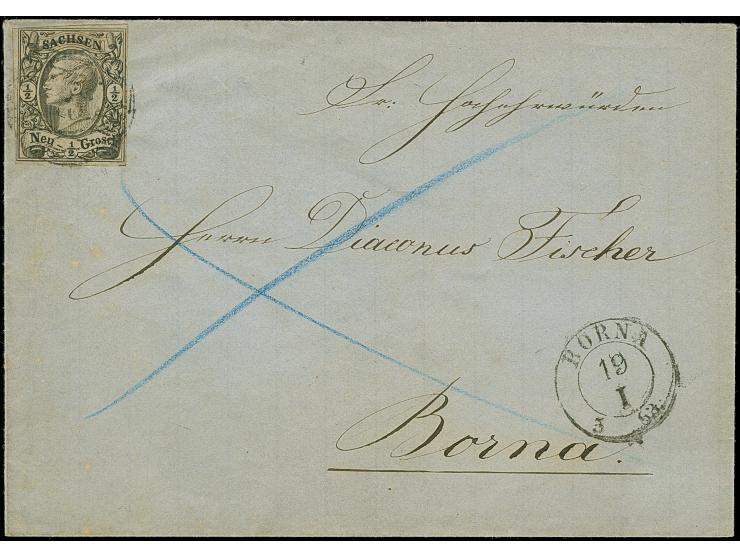 SACHSEN
½ ½
Neu- ½ Grosch
Sr. Hochehrwürden
Herrn Diaconus Fischer
BORNA
19
I
3 63.
Borna.